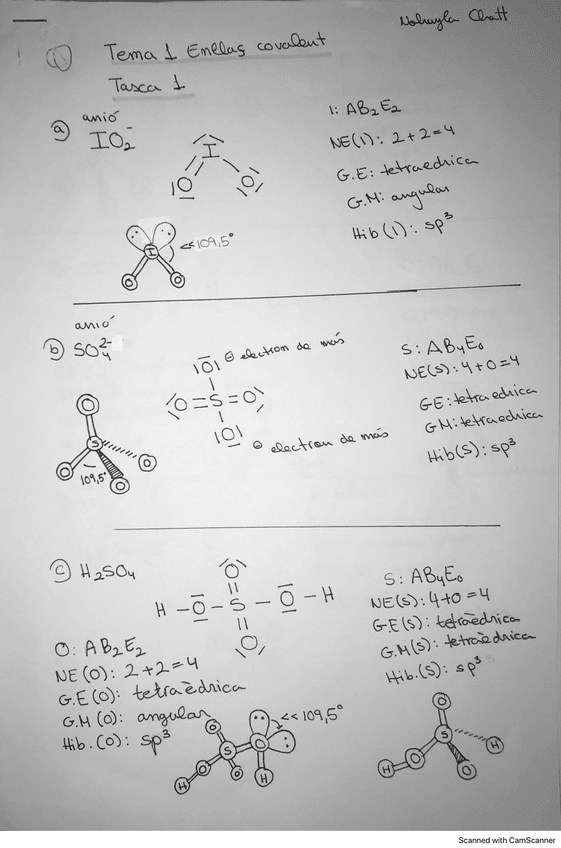 ① Tema 1 Enllaç covalent
Tasca 1
a) anió
IO₂⁻
I
O O
1: AB₂E₂
NE(1): 2+2=4
G.E: tetraedrica
G.M: angular
Hib(1): sp³
I
O O
<<109,5°
anió
b) SO₄²⁻
O ⊖ electron de más
O=S=O
O ⊖ electron de más
S: AB₄E₀
NE(S): 4+0=4
GE: tetraedrica
GM: tetraedrica
Hib(S): sp³
O
S
O O O
109,5°
c) H₂SO₄
O
H – O – S – O – H
O
S: AB₄E₀
NE(S): 4+0=4
G.E(S): tetraèdrica
G.M(S): tetraèdrica
Hib.(S): sp³
O: AB₂E₂
NE(O): 2+2=4
G.E(O): tetraèdrica
G.M(O): angular
Hib.(O): sp³
<<109,5°
O
S O
H O O H
O
S
H O O H
Scanned with CamScanner